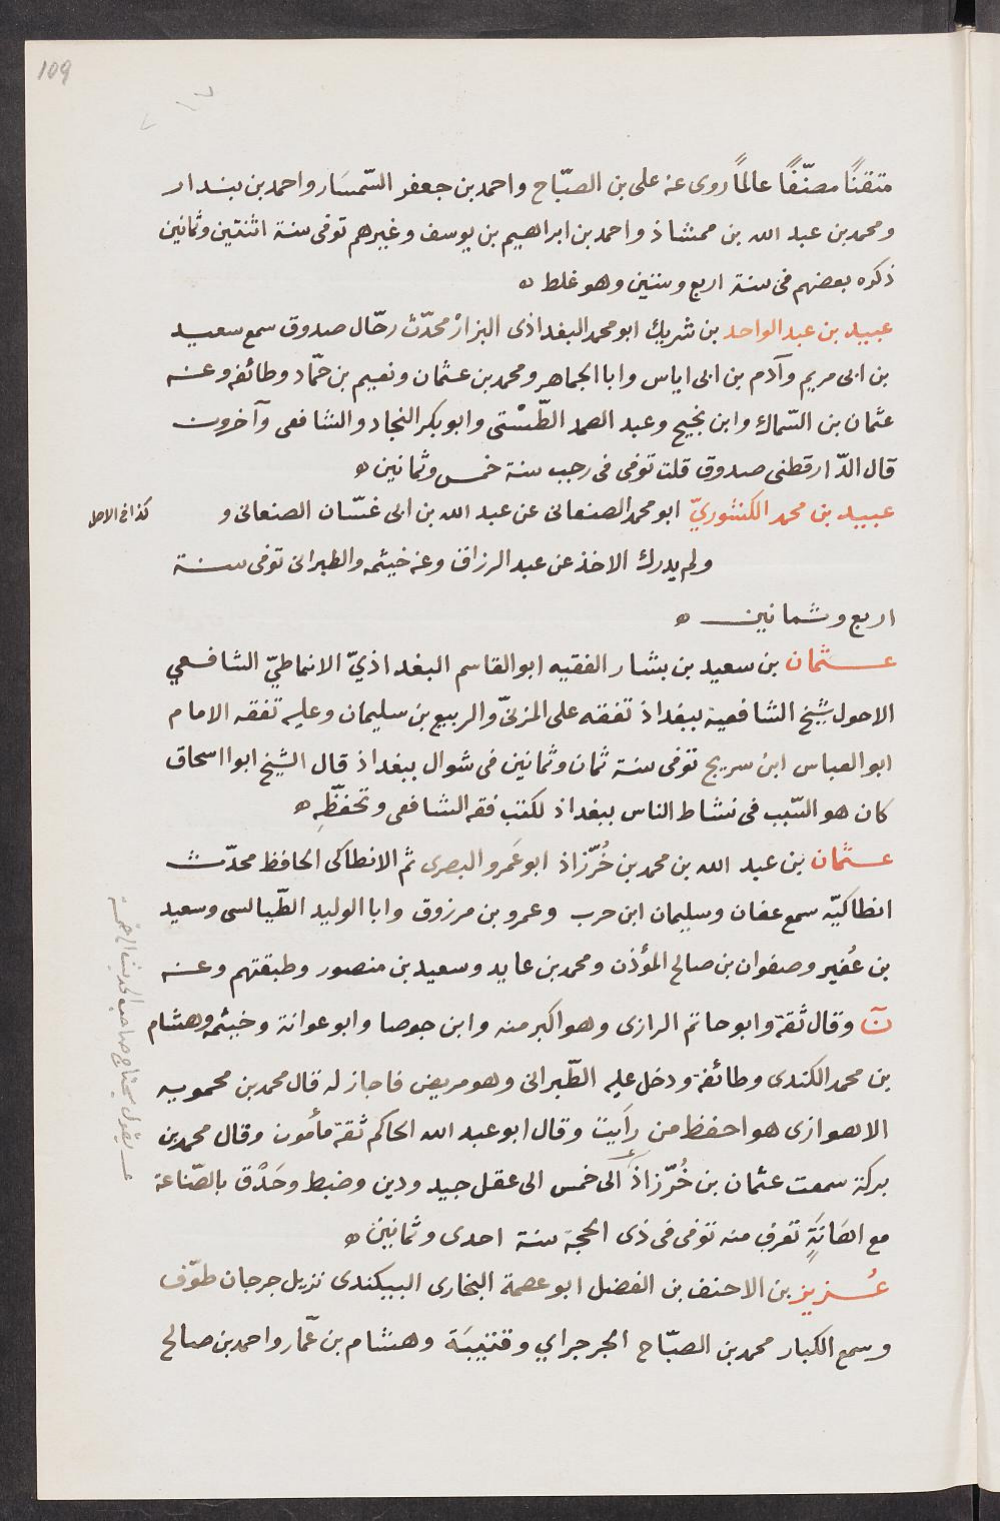 109
متقنًا مصنّفًا عالمًا روى عنه على بن الصبّاح واحمد بن جعفر السّمسَار واحمد بن بندار
ومحمد بن عبد الله بن ممشاذ واحمد بن ابراهيم بن يوسف وغيرهم توفى سنة اثنتين وثمانين
ذكره بعضهم فى سنة اربع وستين وهو غلط ه
عبيد بن عبد الواحد بن شريك ابو محمد البغداذى البزار محدّث رحّال صدوق سمع سعيد
بن ابى مريم وآدم بن ابى اياس وابا الجماهر ومحمد بن عثمان ونعيم بن حمّاد وطائفه وعنه
عثمان بن السّماك وابن نجيح وعبد الصمد الطّسْتى وابو بكر النجاد والشافعى وآخرون
قال الدّارقطنى صدوق قلت توفى فى رجب سنة خمس وثمانين ه
عبيد بن محمد الكشوريّ ابو محمد الصنعانى عن عبد الله بن ابى غسّان الصنعانى و
كذا فى الاصل
ولم يدرك الاخذ عن عبد الرزاق وعنه خيثمه والطبرانى توفى سنة
اربع وثمانين ه
عثمان بن سعيد بن بشار الفقيه ابو القاسم البغداذيّ الانماطيّ الشافعي
الاحول شيخ الشافعية ببغداذ تفقه على المزنىّ والربيع بن سليمان وعليه تفقه الامام
ابو العباس ابن سريج توفى سنة ثمان وثمانين فى شوال ببغداذ قال الشيخ ابو اسحاق
كان هو السّبب فى نشاط الناس ببغداذ لكتب فقه الشافعى وتحفظّهِ ه
عثمان بن عبد الله بن محمد بن خُرّزاذ ابو عَمرو البصرى ثم الانطاكى الحافظ محدّث
انطاكيّه سمع عفان وسليمان ابن حرب وعمرو بن مرزوق وابا الوليد الطّيالسى وسعيد
بن عُفير وصفوان بن صالح المؤذن ومحمد بن عايد وسعيد بن منصور وطبقتهم وعنه
نَ وقال ثقة وابو حاتم الرازى وهو اكبر منه وابن جوصا وابو عوانة وخيثمه وهشام
بن محمد الكندى وطائفة ودخل عليه الطّبرانى وهو مريض فاجاز له قال محمد بن محمويه
الاهوازى هو احفظ من رأيت وقال ابو عبد الله الحاكم ثقة مأمون وقال محمد بن
بركة سمعت عثمان بن خُرّزاذ
يقول يحتاج صاحب الحديث الى خمسة
الى خمس الى عقل جيد ودين وضبط وحَذْق بالصّناعة
مع امَانَةٍ تعرف منه توفى فى ذى الحجة سنة احدى وثمانين ه
عُزيز بن الاحنف بن الفضل ابو عصمة البخارى البيكندى نزيل جرجان طوّف
وسمع الكبار محمد بن الصبّاح الجرجراي وقتيبَة وهشام بن عمّار واحمد بن صالح